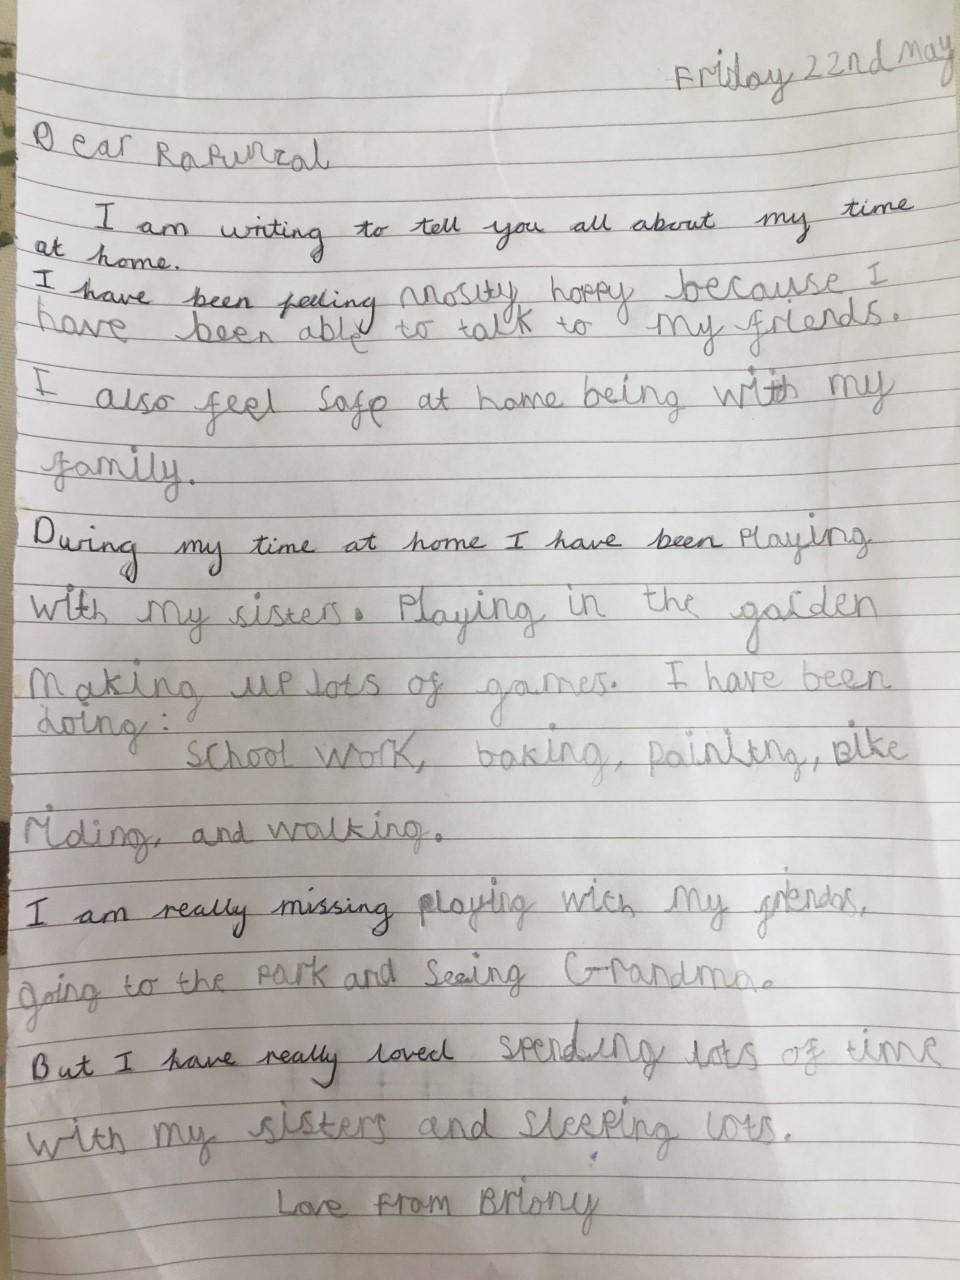 Friday 22nd May
Dear Rapunzal
I am writing to tell you all about my time
at home.
I have been feeling mostly happy because I
have been able to talk to my friends.
I also feel safe at home being with my
family.
During my time at home I have been Playing
with my sisters. Playing in the garden
Making up lots of games. I have been
doing:
School work, baking, painting, bike
riding, and walking.
I am really missing playing with my friends,
going to the park and seeing Grandma.
But I have really loved spending lots of time
with my sisters and sleeping lots.
Love from Briony